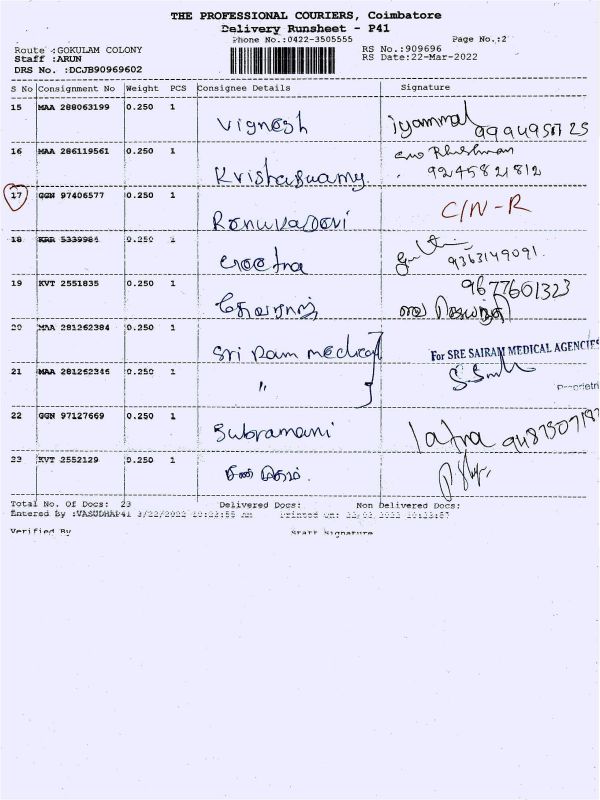 THE PROFESSIONAL COURIERS, Coimbatore
Delivery Runsheet - P41
Phone No.:0422-3505555 Page No.:2
Route :GOKULAM COLONY RS No.:909696
Staff :ARUN RS Date:22-Mar-2022
DRS No. :DCJB90969602
S No Consignment No Weight PCS Consignee Details Signature
15 MAA 288063199 0.250 1 Vignesh iyammal
16 MAA 286119561 0.250 1 Krishaswamy. 9245821812
17 GGN 97406577 0.250 1 Renuvadevi C/N-R
18 KRR 5339984 0.250 1 9363149091.
19 KVT 2551835 0.250 1 தேவராஜ் 9677601323
20 MAA 281262384 0.250 1 Sri Ram medical For SRE SAIRAM MEDICAL AGENCIES
21 MAA 281262346 0.250 1 "
22 GGN 97127669 0.250 1 Subramani latha
23 KVT 2552129 0.250 1
Total No. Of Docs: 23 Delivered Docs: Non Delivered Docs:
Entered By :VASUDHAP41 3/22/2022 10:23:55 AM Printed on: 22/03/2022 10:23:57
Verified By Staff Signature